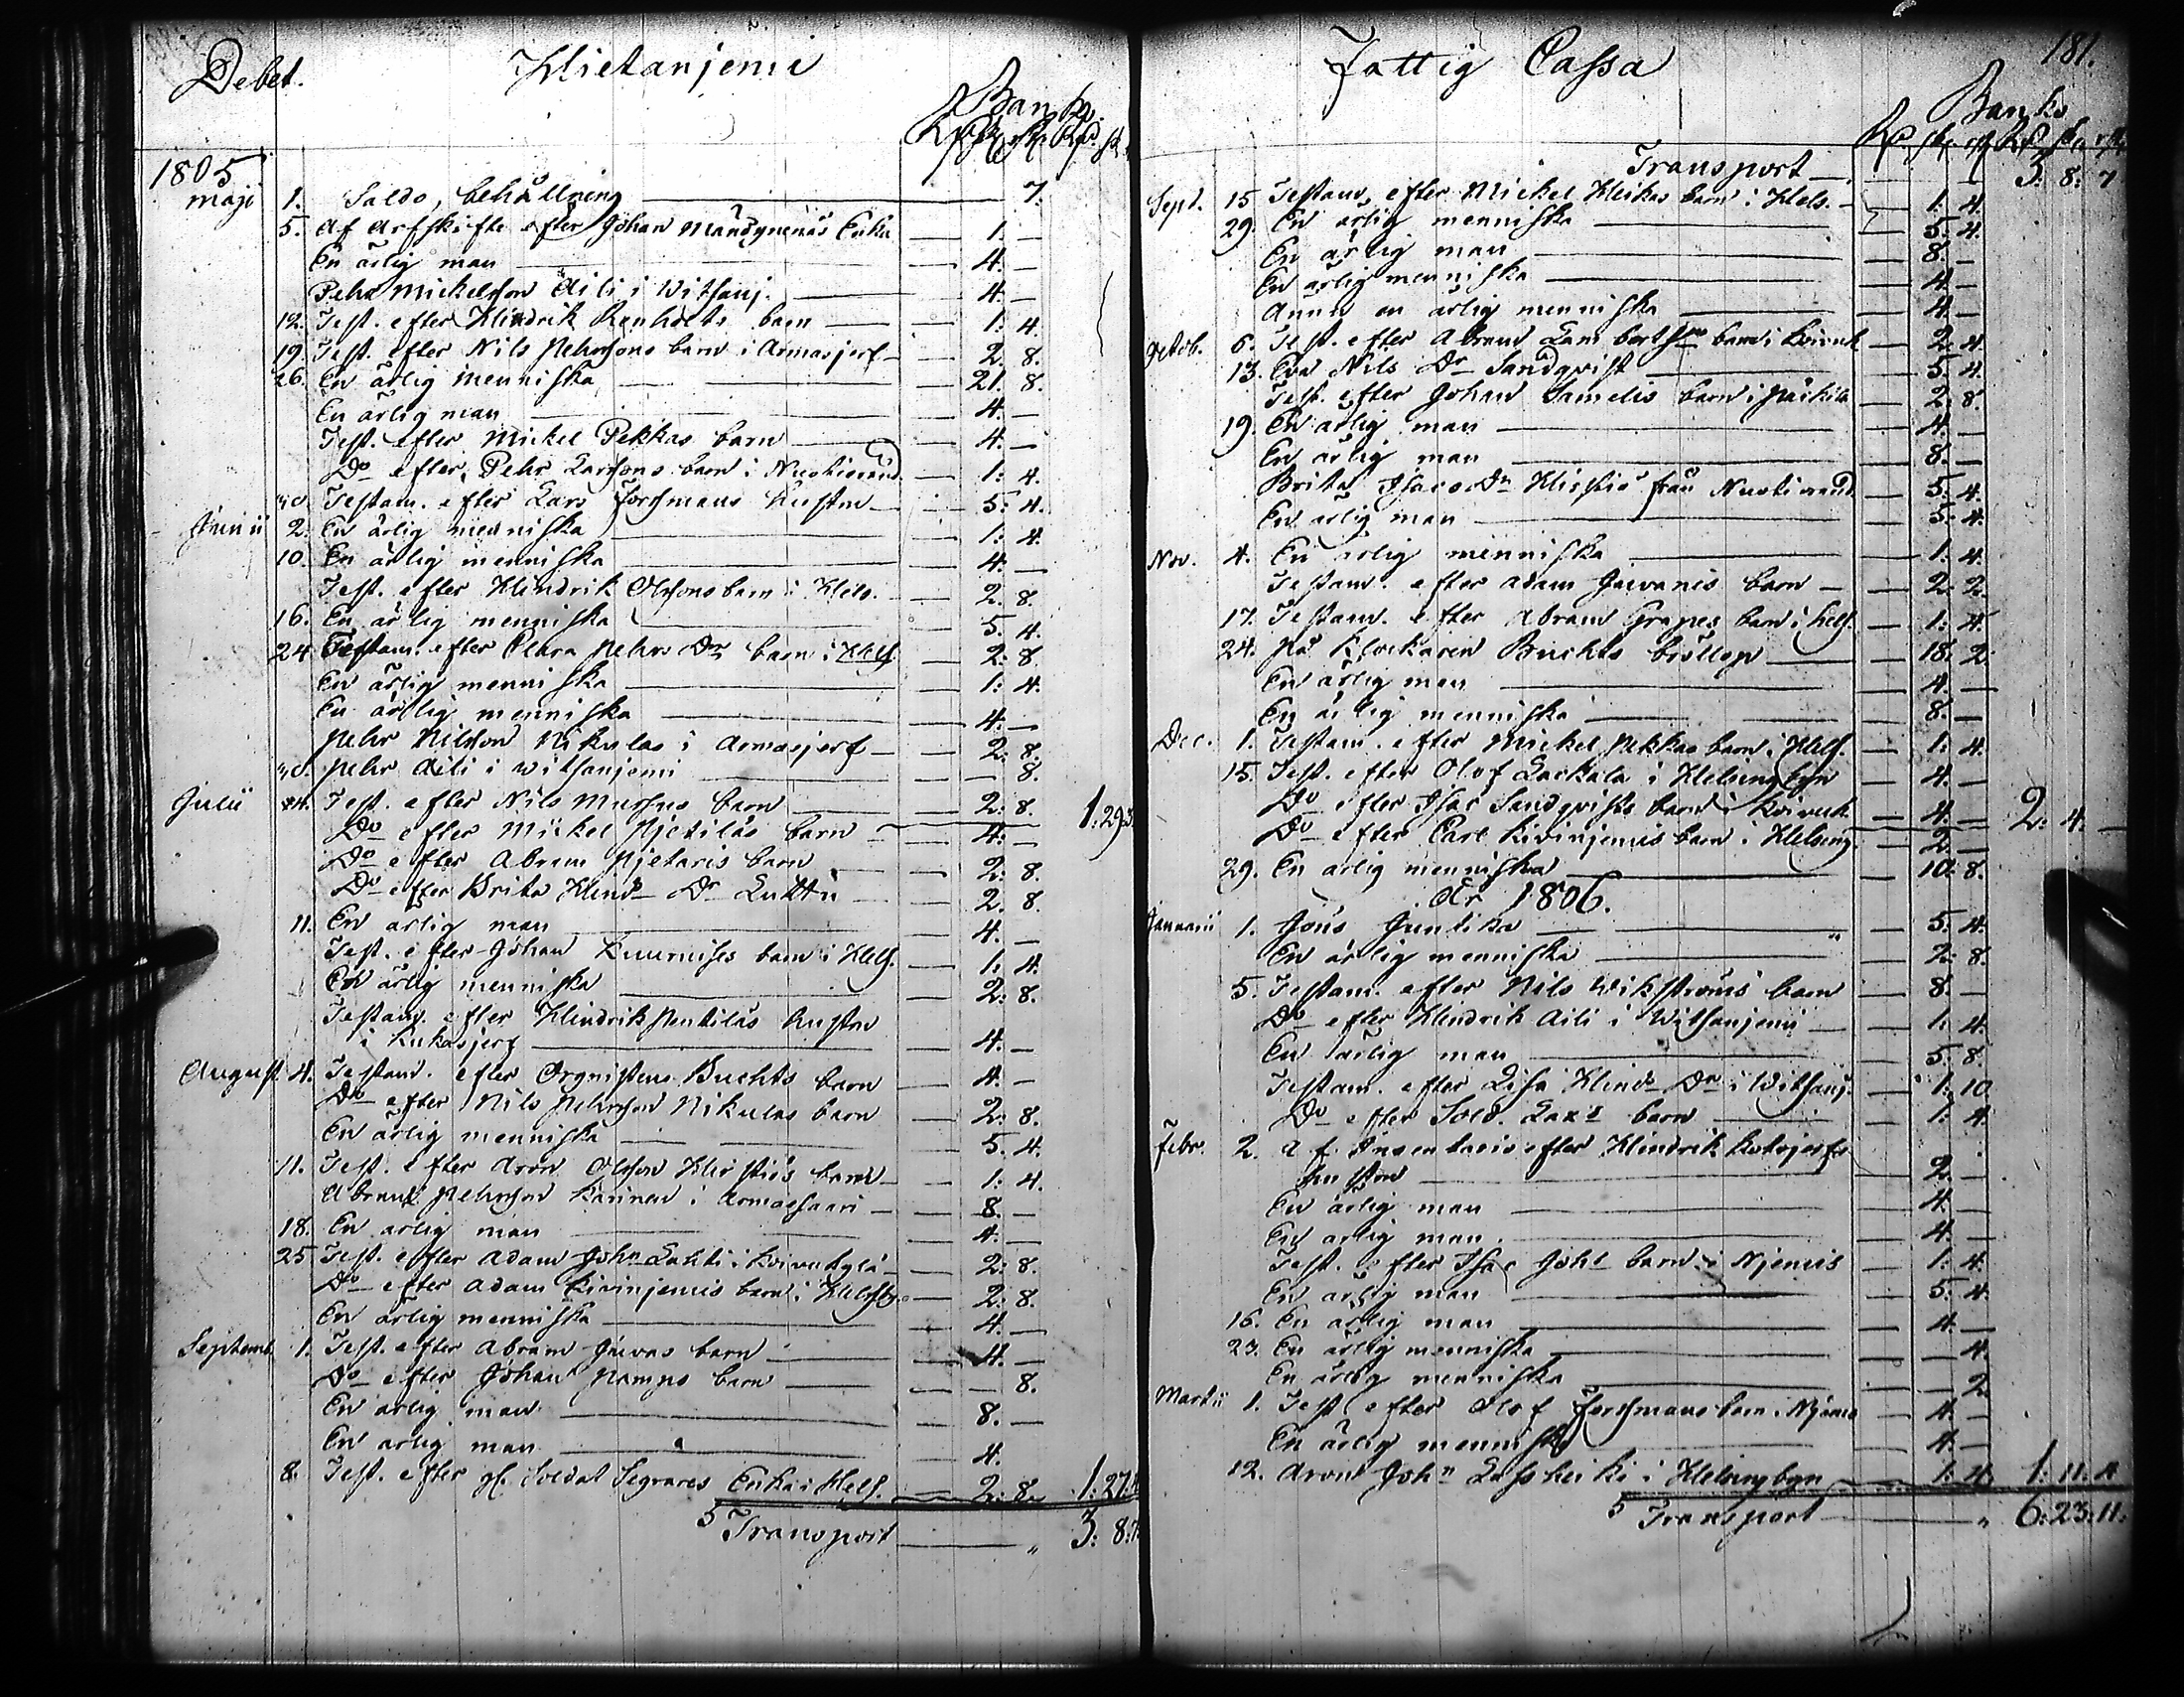 Debet. Hietaniemi
Banko
Rd sk. Rd. sk
1805
Maji 1. Saldo, behållning 7.
5. Af Arfskifte efter Johan Enka 1. —
En ärlig man 4. —
Pehr Mickelsson Aili i Witsanj. 4. —
12. Test. efter Hindrik barn 1: 4.
19. Test. efter Nils Pehrssons barn i Armasjerf 2. 8.
26. En ärlig menniska 21. 8.
En ärlig man 4. —
Test. efter Mickel Pekkas barn 4. —
Do efter Pehr Larssons barn i 1: 4.
30. Testam. efter Lars Forssmans hustru 5: 4.
Junii 2. En ärlig menniska 1: 4.
10. En ärlig menniska 4. —
Test. efter Hindrik Olssons barn i Hels. 2. 8.
16. En ärlig menniska 5. 4.
24 Testam. efter Pehrs Dr barn i Hels. 2: 8.
En ärlig menniska 1: 4.
En ärlig menniska 4. —
Pehr Nilsson Nikulas i Armasjerf 2: 8.
30. Pehr Aili i Witsanjemi 8.
Julii 4. Test. efter Nils barn 2: 8. 1: 29: 3.
Do efter Mickel Pjetiläs barn 4. —
Do efter Abram Pjetaris barn 2: 8.
Do efter Brita Hind. Dr 2. 8.
11. En ärlig man 4. —
Test. efter Johan barn i Hels. 1: 4.
En ärlig menniska 2: 8.
Testam. efter Hindrik Pentiläs hustru
i Kukasjerf 4. —
August 4. Testam. efter Orgnistens Buchts barn 4. —
Do efter Nils Pehrsson Nikulas barn 2: 8.
En ärlig menniska 5. 4.
11. Test. efter Aron Olsson barn 1: 4.
Abram Pehrsson Karinen i Armassaari 8. —
18. En ärlig man 4. —
25 Test. efter Adam Johns Lahti i 2: 8.
Do efter Adam Kivinjemis barn i Helsby. 2: 8.
En ärlig menniska 4. —
Septemb. 1. Test. efter Abram Juvas barn 4. —
Do efter Johan barn 8.
En ärlig man 8. —
En ärlig man 4.
8. Test. efter gl. Soldat Segrares Enka i Hels. 2: 8. 1: 27:
Transport 3: 8: 7.
Fattig Cassa 181.
Banko
Rd sk. rst Rd sk. rst
Transport 3: 8: 7
Sept. 15 Testam. efter Mickel barn i Hels. 1. 4.
29. En ärlig menniska 5. 4.
En ärlig man 8. —
En ärlig menniska 4 —
Ännu en ärlig menniska 4 —
Octob. 6. Test. efter Abram Lambertssons barn i 2: 4
13. Eva Nils Dr Sandqvist 5. 4.
Test. efter Johan Samelis barn i Päkkilä 2. 8.
19. En ärlig man 4. —
En ärlig man 8. —
Brita Isacs Dr från 5: 4.
En ärlig man 5: 4.
Nov. 4. En ärlig menniska 1: 4.
Testam. efter Adam barn 2. 2.
17. Testam. efter Abram Grapes barn i Hels. 1: 4.
24. På Klockaren Buchts bröllop 18. 2.
En ärlig man 4. —
En ärlig menniska 8. —
Dec. 1. Testam. efter Mickel Pekkas barn i Hels. 1: 4.
15. Test. efter Olof i Helsingbyn 4. —
Do efter Isac Sandqvists barn i 4. — 2: 4. —
Do efter Carl Kivinjemis barn i Helsing. 2. —
29. En ärlig menniska 10: 8.
År 1806.
Januarii 1. Jöns Juntika 5. 4.
En ärlig menniska 2: 8.
5. Testam. efter Nils Wikströms barn 8. —
Do efter Hindrik Aili i Witsanjemi 1: 4.
En ärlig man 5: 8.
Testam. efter Lisa Hinds Dr i Witsanj. 1: 10
Do efter Sold. Lax's barn 1: 4.
Febr. 2. Af Inventarie efter Hindrik
hustru 2. —
En ärlig man 4. —
En ärlig man. 4. —
Test. efter Isac Johs barn i Njemis 1: 4.
En ärlig man 5. 4.
16. En ärlig man 4. —
23. En ärlig menniska 4.
En ärlig menniska 2
Martii 1. Test. efter Olof Forssmans barn i Njemis 4. —
En ärlig menniska 4. —
12. Arvid John i Helsingbyn 1: 4. 1: 11. 4
Transport 6: 23: 11.